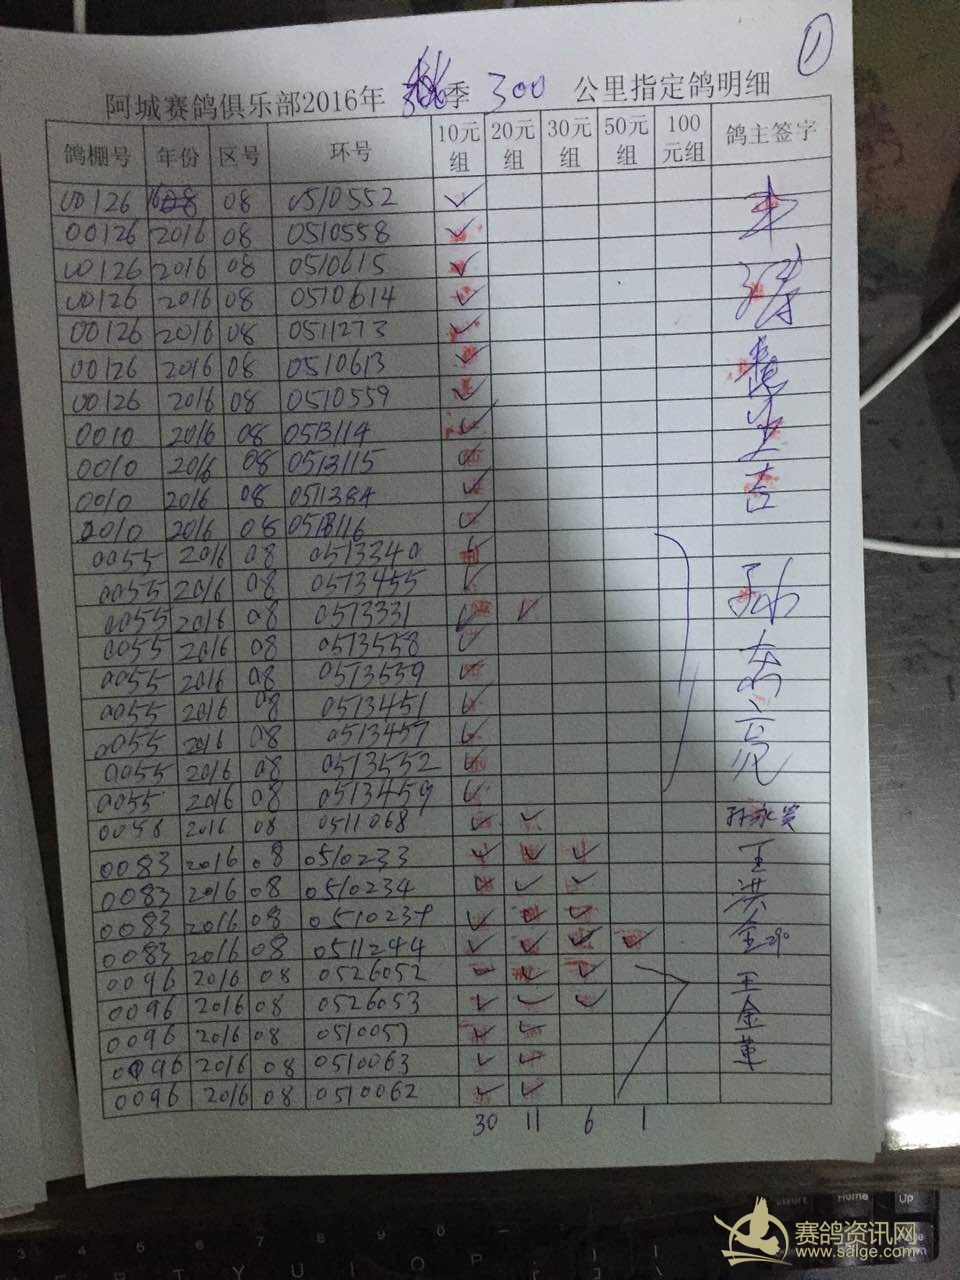 1
阿城赛鸽俱乐部2016年 秋季 300 公里指定鸽明细
鸽棚号 年份 区号 环号 10元组 20元组 30元组 50元组 100元组 鸽主签字
00126 08 0510552 ✓
00126 2016 08 0510558 ✓
00126 2016 08 0510615 ✓
00126 2016 08 0510614 ✓
00126 2016 08 0511273 ✓
00126 2016 08 0510613 ✓
00126 2016 08 0510559 ✓
0010 2016 08 0513114 ✓
0010 2016 08 0513115 ✓
0010 2016 08 0511384 ✓
0010 2016 08 0513116 ✓
0055 2016 08 0513340 ✓
0055 2016 08 0513455 ✓
0055 2016 08 0513331 ✓ ✓
0055 2016 08 0513558 ✓
0055 2016 08 0513559 ✓
0055 2016 08 0513451 ✓
0055 2016 08 0513457 ✓
0055 2016 08 0513552 ✓
0055 2016 08 0513459 ✓
0058 2016 08 0511068 ✓ ✓
0083 2016 08 0510233 ✓ ✓ ✓ 王
0083 2016 08 0510234 ✓ ✓ ✓ 洪
0083 2016 08 051023 ✓ ✓ ✓
0083 2016 08 0511244 ✓ ✓ ✓ ✓ 全 290
0096 2016 08 0526052 ✓ ✓ ✓ 王
0096 2016 08 0526053 ✓ ✓ ✓ 金
0096 2016 08 0510057 ✓ ✓ 革
0096 2016 08 0510063 ✓ ✓
0096 2016 08 0510062 ✓ ✓
30 11 6 1
Home
Up
3 4 5 6 7 8 9 0
R T Y U I O P
赛鸽资讯网
www.saige.com